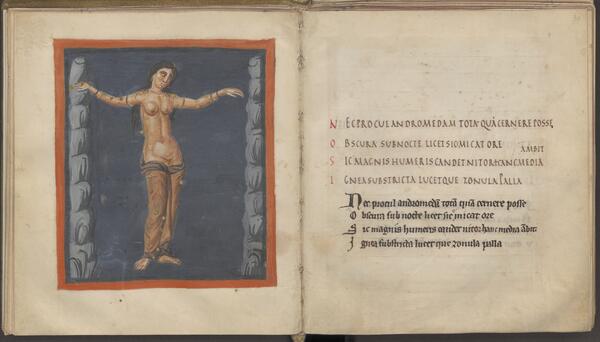 NEC PROCUL ANDROMEDAM TOTA QUĀ CERNERE POSSE
OBSCURA SUB NOCTE LICET SIC MICAT ORE
AMBIT
SIC MAGNIS HUMERIS CANDET NITOR HANC MEDIA
IGNEA SUBSTRICTA LUCET QUE ZONULA PALLA
Nec procul andromedā totā quā cernere posse
Obscura sub nocte licet sic micat ore
Sic magnis humeris candet nitor hanc media Ambit
Ignea substricta lucet que zonula palla